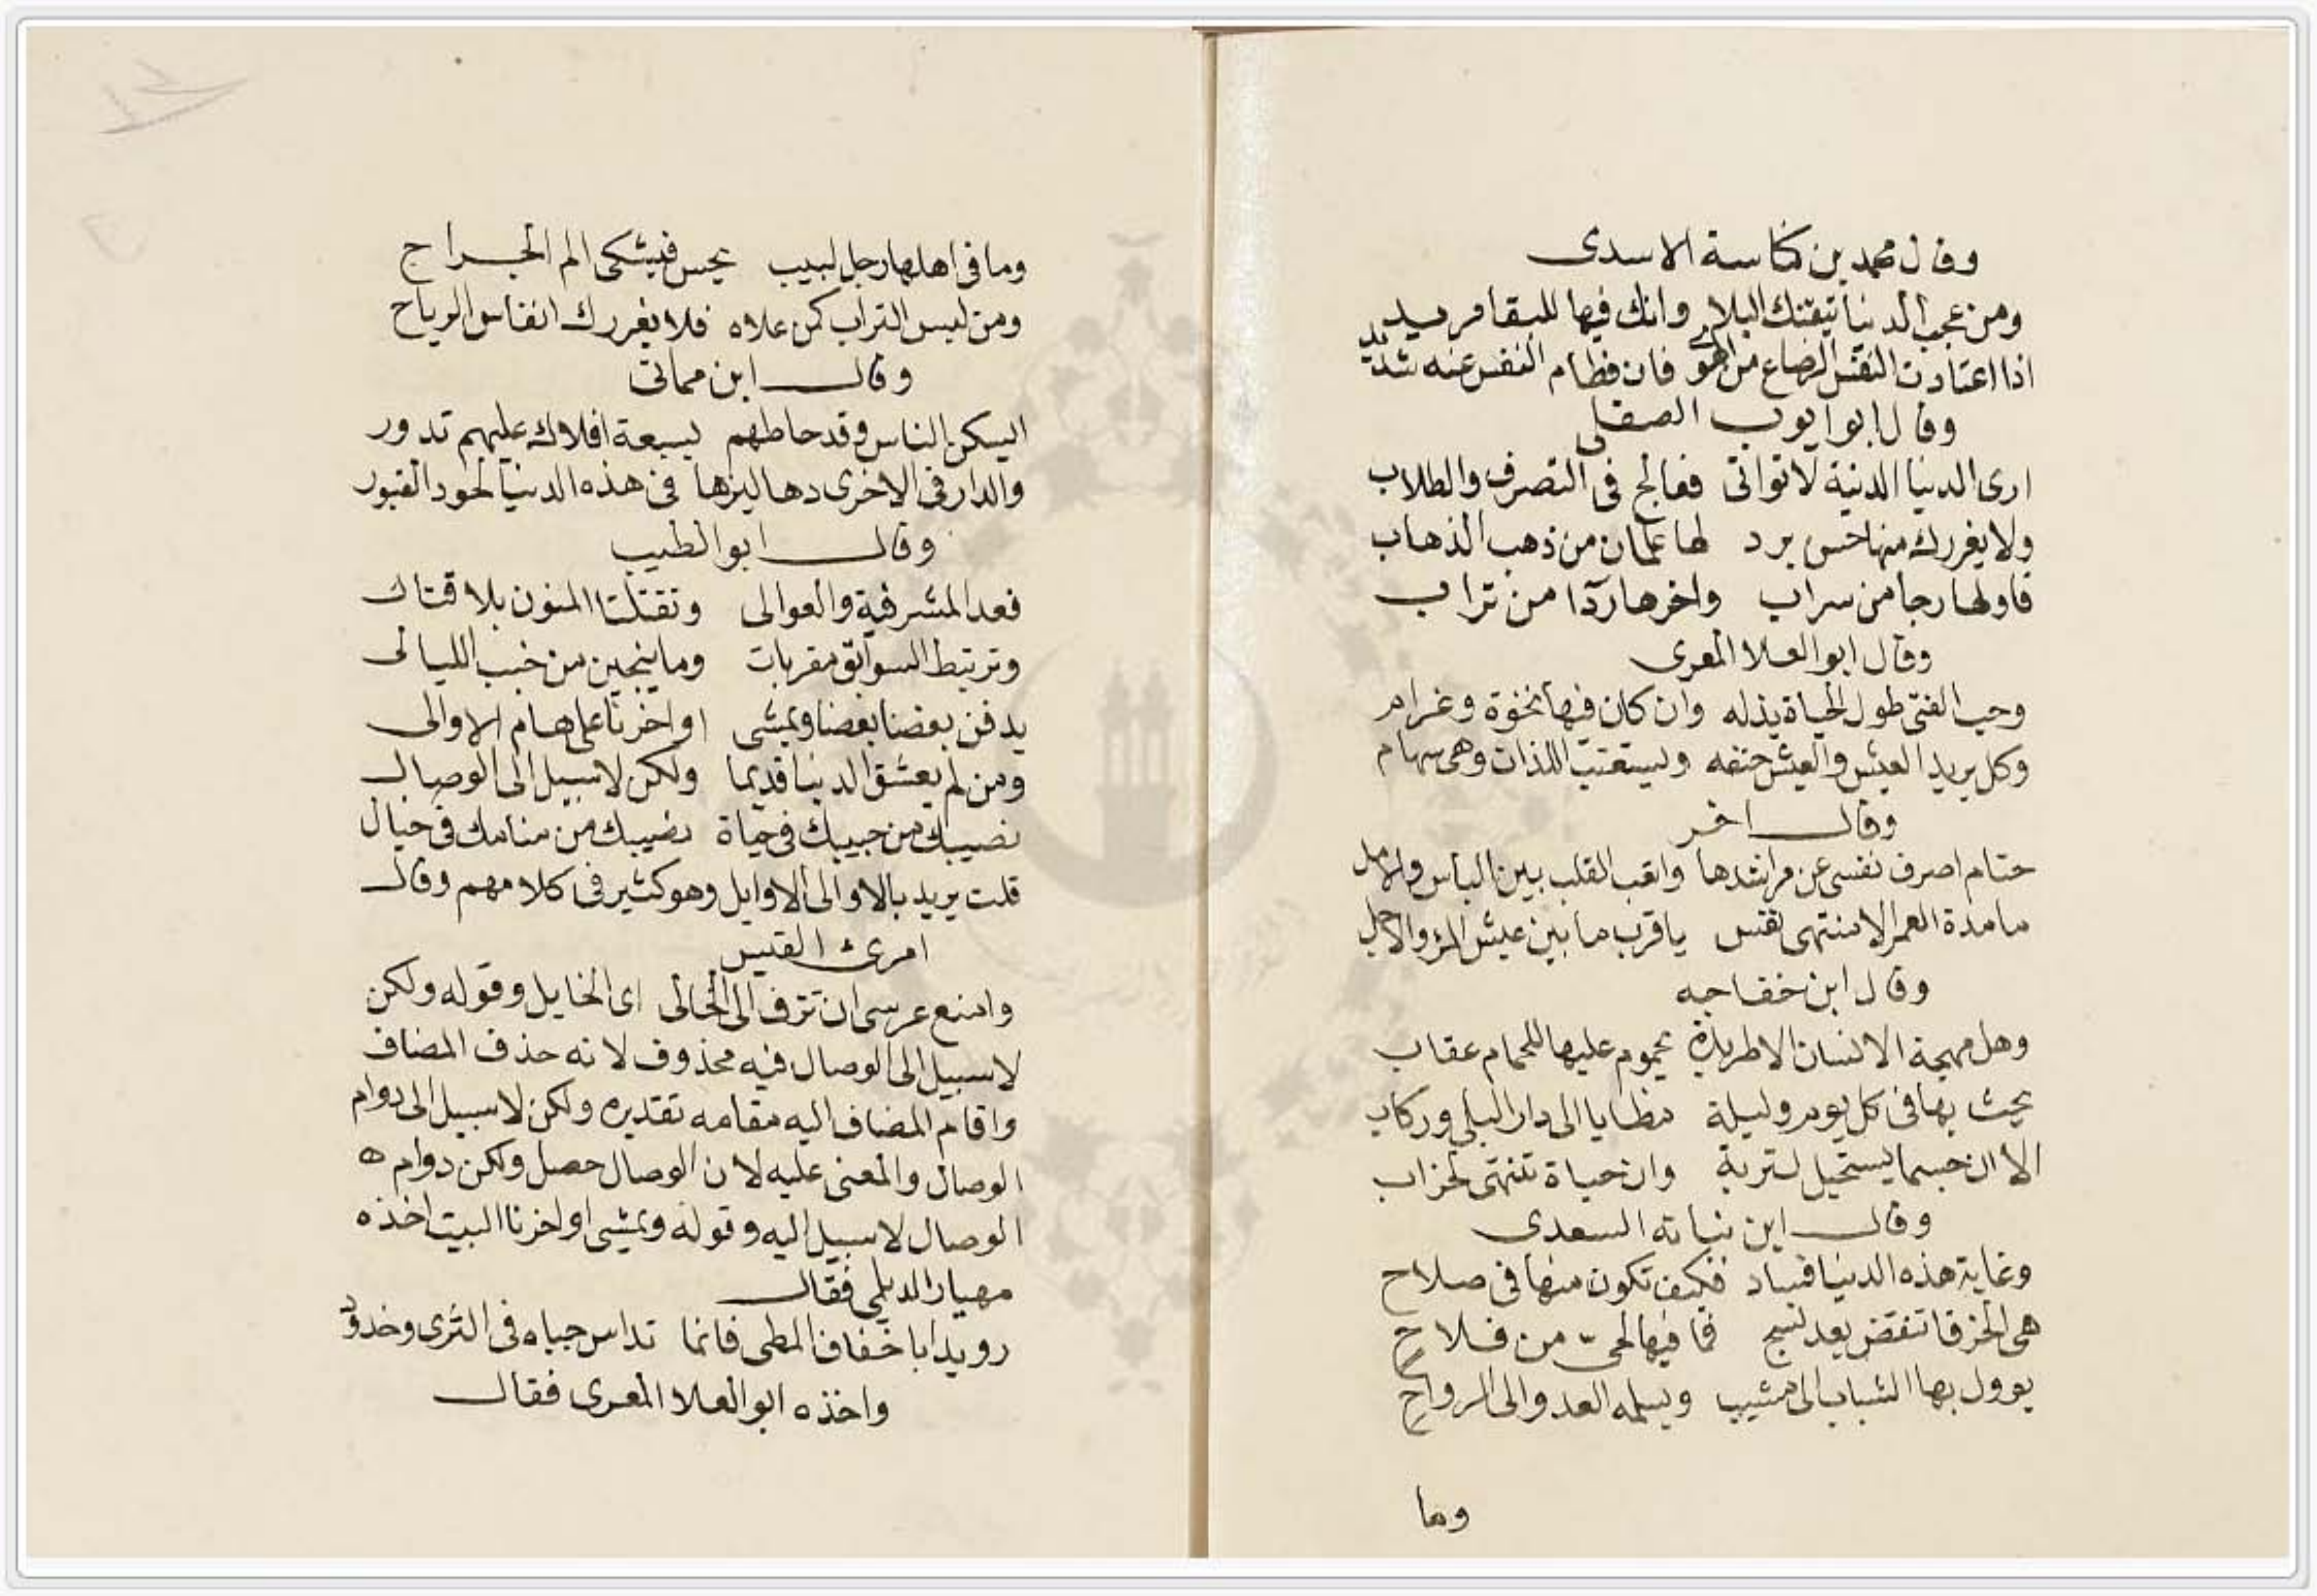 وقال محمد بن كناسة الاسدى
ومن عجب الدنيا تيقنك البلا وانك فيها للبقا مريد
اذا اعتادت النفس الرضاع من الهوى فان فطام النفس عنه شديد
وقال ابو ايوب الصقلى
ارى الدنيا الدنية لا تواتى فعالج فى التصرف والطلاب
ولا يغررك منها حسن برد لها علمان من ذهب الذهاب
فاولها رجا من سراب واخرها ردآ من تراب
وقال ابو العلا المعرى
وحب الفتى طول الحياة يذله وان كان فيها نخوة وغرام
وكل يريد العيش والعيش حتفه ويستعذب اللذات وهى سهام
وقال اخر
حتام اصرف نفسى عن مراشدها واتعب القلب بين الياس والامل
ما مدة العمر الا منتهى نفس يا قرب ما بين عيش المرء والاجل
وقال ابن خفاجه
وهل مهجة الانسان الا طريدة يحوم عليها للحمام عقاب
يحث بها فى كل يوم وليلة مطايا الى دار البلى وركاب
الا ان جسما يستحيل لتربة وان حياة تنتهى لخراب
وقال ابن نباته السعدى
وغاية هذه الدنيا فساد فكيف تكون منها فى صلاح
هى الخرقا تنقض بعد نسج فما فيها لحىّ من فلاح
يوول بها الشباب الى مشيب ويسلمه الغدو الى الرواح
وما
وما فى اهلها رجل لبيب يحس فيشكى الم الجراح
ومن لبس التراب كمن علاه فلا يغررك انفاس الرياح
وقال ابن مماتى
اليسكن الناس وقد حاطهم لسبعة افلاك عليهم تدور
والدار فى الاخرى دهاليزها فى هذه الدنيا لحود القبور
وقال ابو الطيب
نعد المشرفية والعوالى وتقتلنا المنون بلا قتال
وترتبط السوابق مقربات وما ينجين من خبب الليالى
يدفن بعضنا بعضا ويمشى اواخرنا على هام الاوالى
ومن لم يعشق الدنيا قديما ولكن لا سبيل الى الوصال
نصيبك من حبيبك فى حياة نصيبك من منامك فى خيال
قلت يريد بالاوالى الاوايل وهو كثير فى كلامهم وقال
امرئ القيس
وامنع عرسى ان تزف الى الخالى اى الخايل وقوله ولكن
لا سبيل الى الوصال فيه محذوف لانه حذف المضاف
واقام المضاف اليه مقامه تقديره ولكن لا سبيل الى دوام
الوصال والمعنى عليه لان الوصال حصل ولكن دوام ه
الوصال لا سبيل اليه وقوله ويمشى اواخرنا البيت اخذه
مهيار الديلمى فقال
رويدا باخفاف المطى فانما تداس جباه فى الثرى وخدود
واخذه ابو العلا المعرى فقال